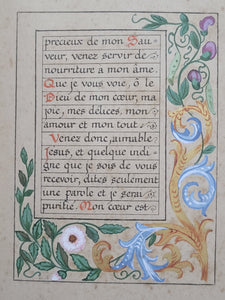 precieux de mon Sau-
veur, venez servir de
nourriture à mon âme.
Que je vous voie, ô le
Dieu de mon cœur, ma
joie, mes délices, mon
amour et mon tout
Venez donc, aimable
Jesus, et quelque indi-
gne que je sois de vous
recevoir, dites seulement
une parole et je serai
purifié. Mon cœur est